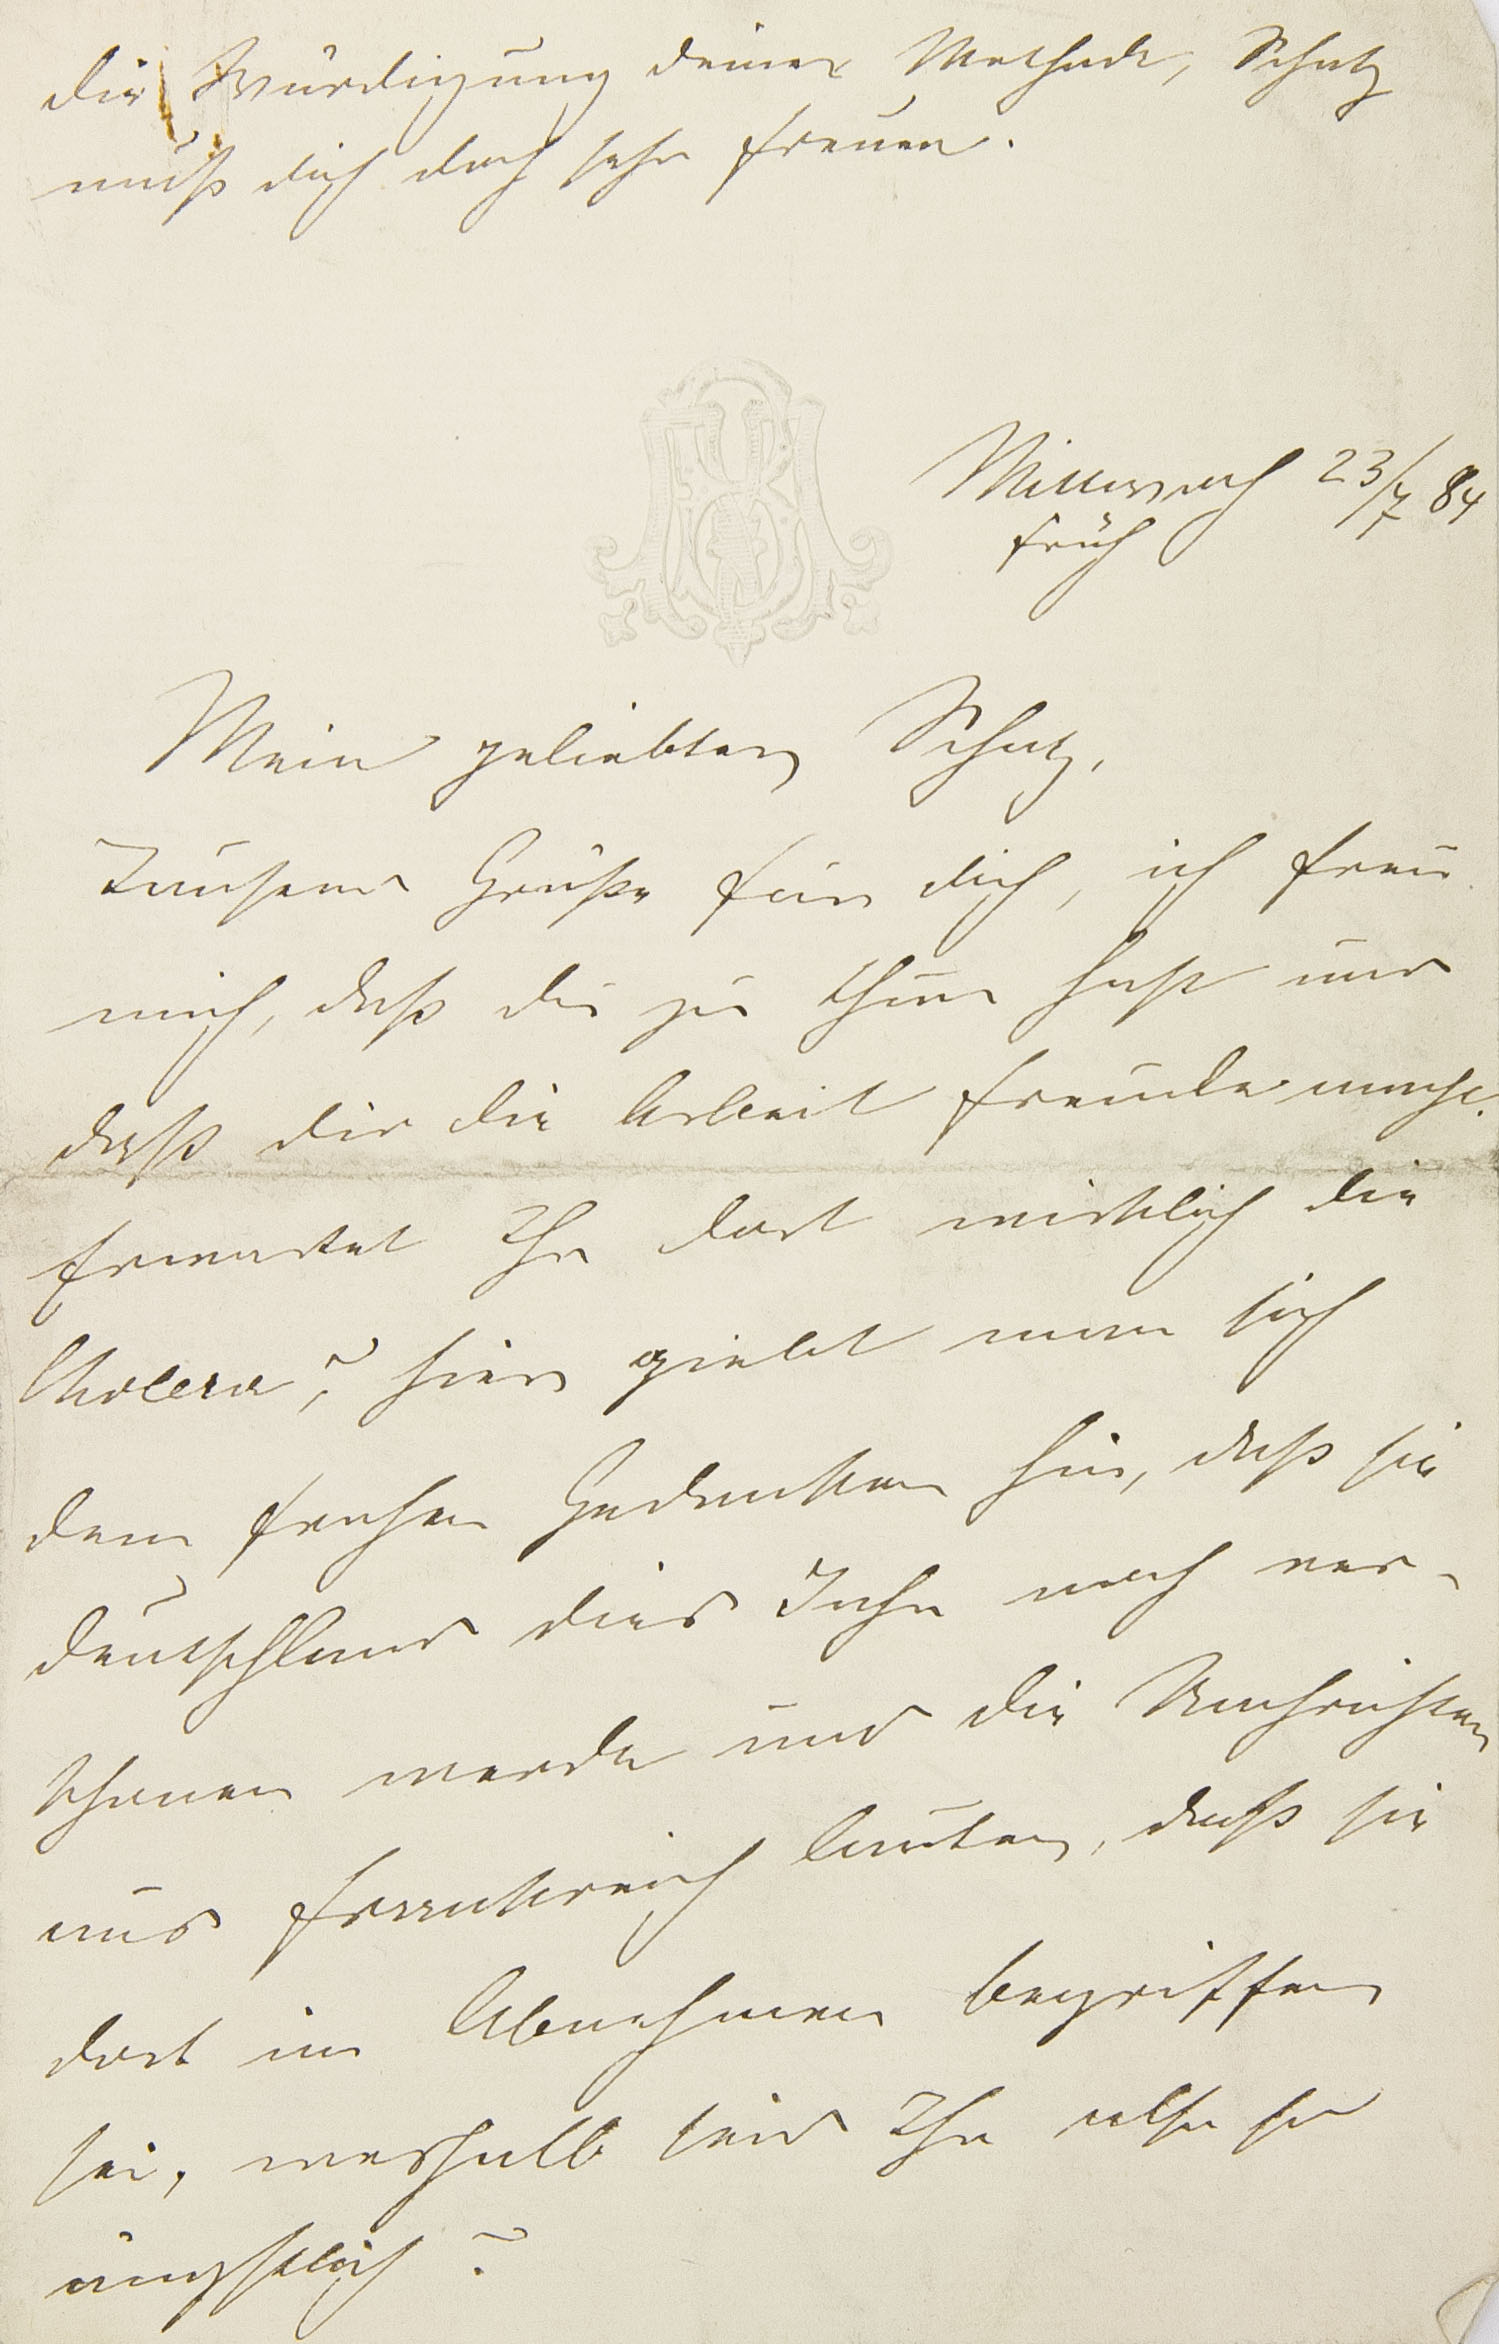 die Würdigung deiner Methode, Schatz
muß dich doch sehr freuen.
Mittwoch 23/7 84
früh
Mein geliebter Schatz,
Tausend Grüße für dich, ich freu
mich, daß du zu thun hast und
daß dir die Arbeit Freude macht.
Erwartet Ihr dort wirklich die
Cholera?, hier giebt man sich
dem frohen Gedanken hin, daß sie
Deutschland dies Jahr noch ver-
schonen werde und die Nachrichten
aus Frankreich lauten, daß sie
dort im Abnehmen begriffen
sei, weshalb seid Ihr also so
ängstlich?